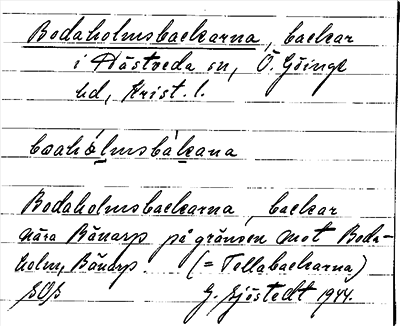 Bodaholmsbackarna, backar
i Hästveda sn, Ö. Göinge
hd, Krist. l.
Bodaholmsbackarna, backar
nära Bänarp på gränsen mot Boda-
holm, Bänarp. (= Tollabackarna)
G. Sjöstedt 1944.